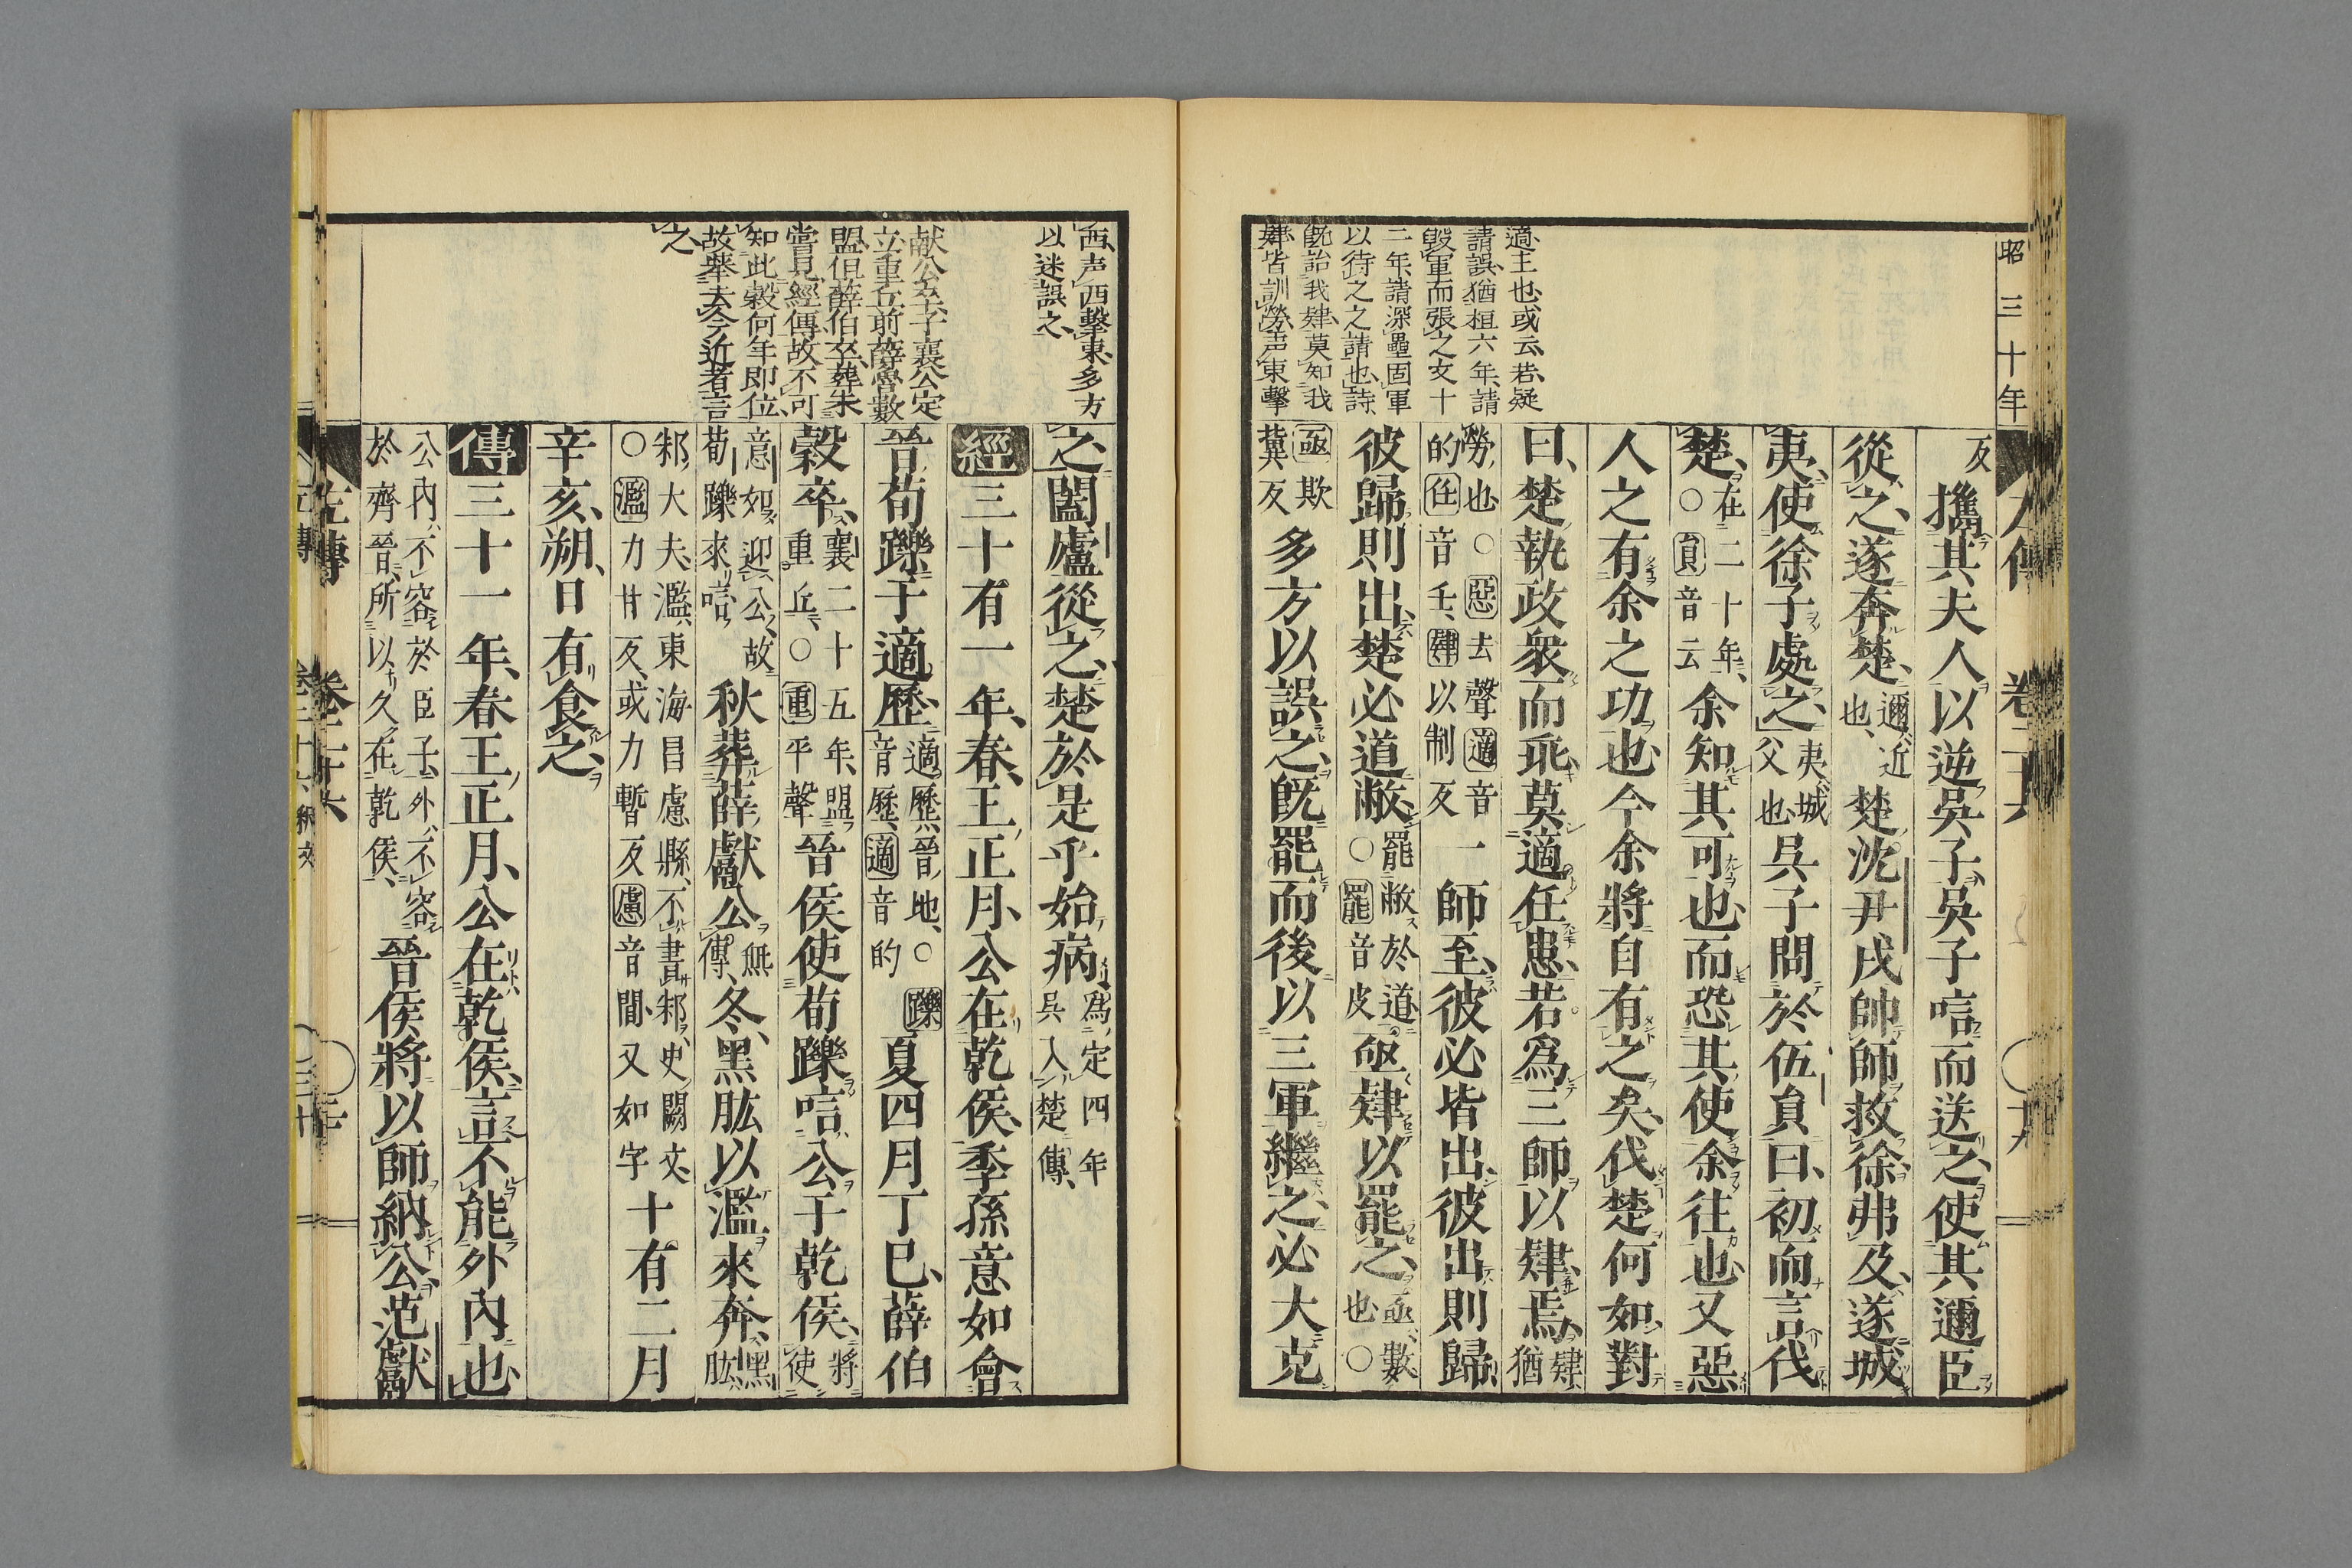 昭三十年
左傳 卷二十六 十九
適主也或云若疑
請誤猶桓六年請
毀軍而張之文十
二年請深壘固軍
以待之之請也詩
旣詒我肄莫知我
肄皆訓勞声東擊
反攜其夫人以逆吳子吳子唁而送之使其邇臣
從之遂奔楚邇近也楚沈尹戌帥師救徐弗及遂城
夷使徐子處之夷城父也吳子問於伍員曰初而言伐
楚在二十年○員音云余知其可也而恐其使余往也又惡
人之有余之功也今余將自有之矣伐楚何如對
曰楚執政衆而乖莫適任患若爲三師以肄焉肄猶
勞也○惡去聲適音的任音壬肄以制反一師至彼必皆出彼出則歸
彼歸則出楚必道敝罷敝於道○罷音皮亟肄以罷之亟數也○
亟欺冀反多方以誤之旣罷而後以三軍繼之必大克
西声西擊東多方
以迷誤之
献公卒子襄公定
立重丘前薛魯數
盟但薛伯卒葬未
嘗見經傳故不可
知此穀何年即位
故舉去今近者言
之
之闔廬從之楚於是乎始病爲定四年吳入楚傳
經三十有一年春王正月公在乾侯季孫意如會
晉荀躒于適歷適歷晉地○躒音歷適音的夏四月丁巳薛伯
穀卒襄二十五年盟重丘○重平聲晉侯使荀躒唁公于乾侯將使
意如迎公故荀躒來唁秋葬薛獻公無傳冬黑肱以濫來奔黑肱
邾大夫濫東海昌慮縣不書邾史闕文○濫力甘反或力暫反慮音閭又如字十有二月
辛亥朔日有食之
傳三十一年春王正月公在乾侯言不能外內也
公內不容於臣子外不容於齊晉所以久在乾侯晉侯將以師納公范獻
左傳 卷二十六 二十